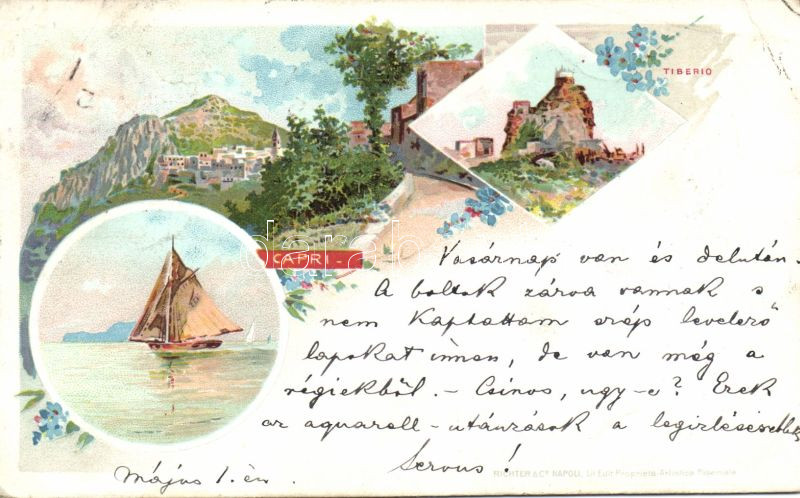 TIBERIO
CAPRI
Vasárnap van és delután.
A boltok zárva vannak s
nem kaptattam szép levelező
lapokat innen, de van még a
régiekből. – Csinos, ugy-e? Ezek
az aquarell-utánzások a legizlésesebbek
Servus!
Május 1.én.
RICHTER & Co. NAPOLI,